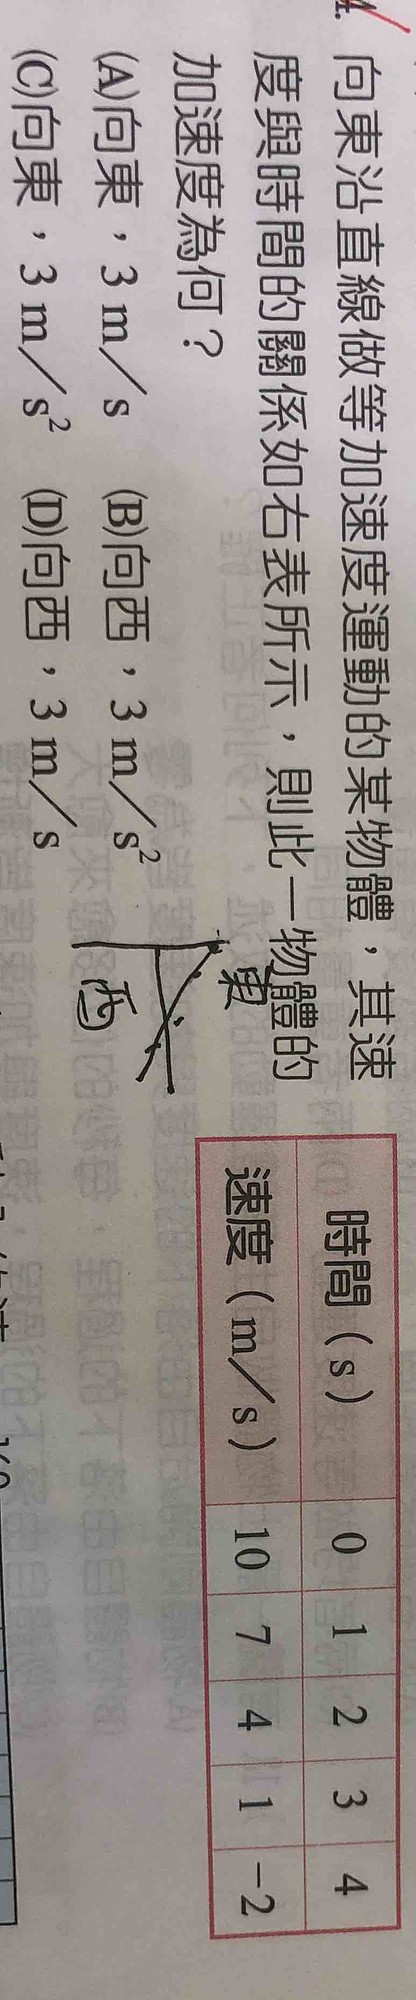 4. 向東沿直線做等加速度運動的某物體，其速
度與時間的關係如右表所示，則此一物體的
加速度為何？
(A)向東，3 m／s (B)向西，3 m／s²
(C)向東，3 m／s² (D)向西，3 m／s
東
西
時間（s） 0 1 2 3 4
速度（m／s） 10 7 4 1 −2